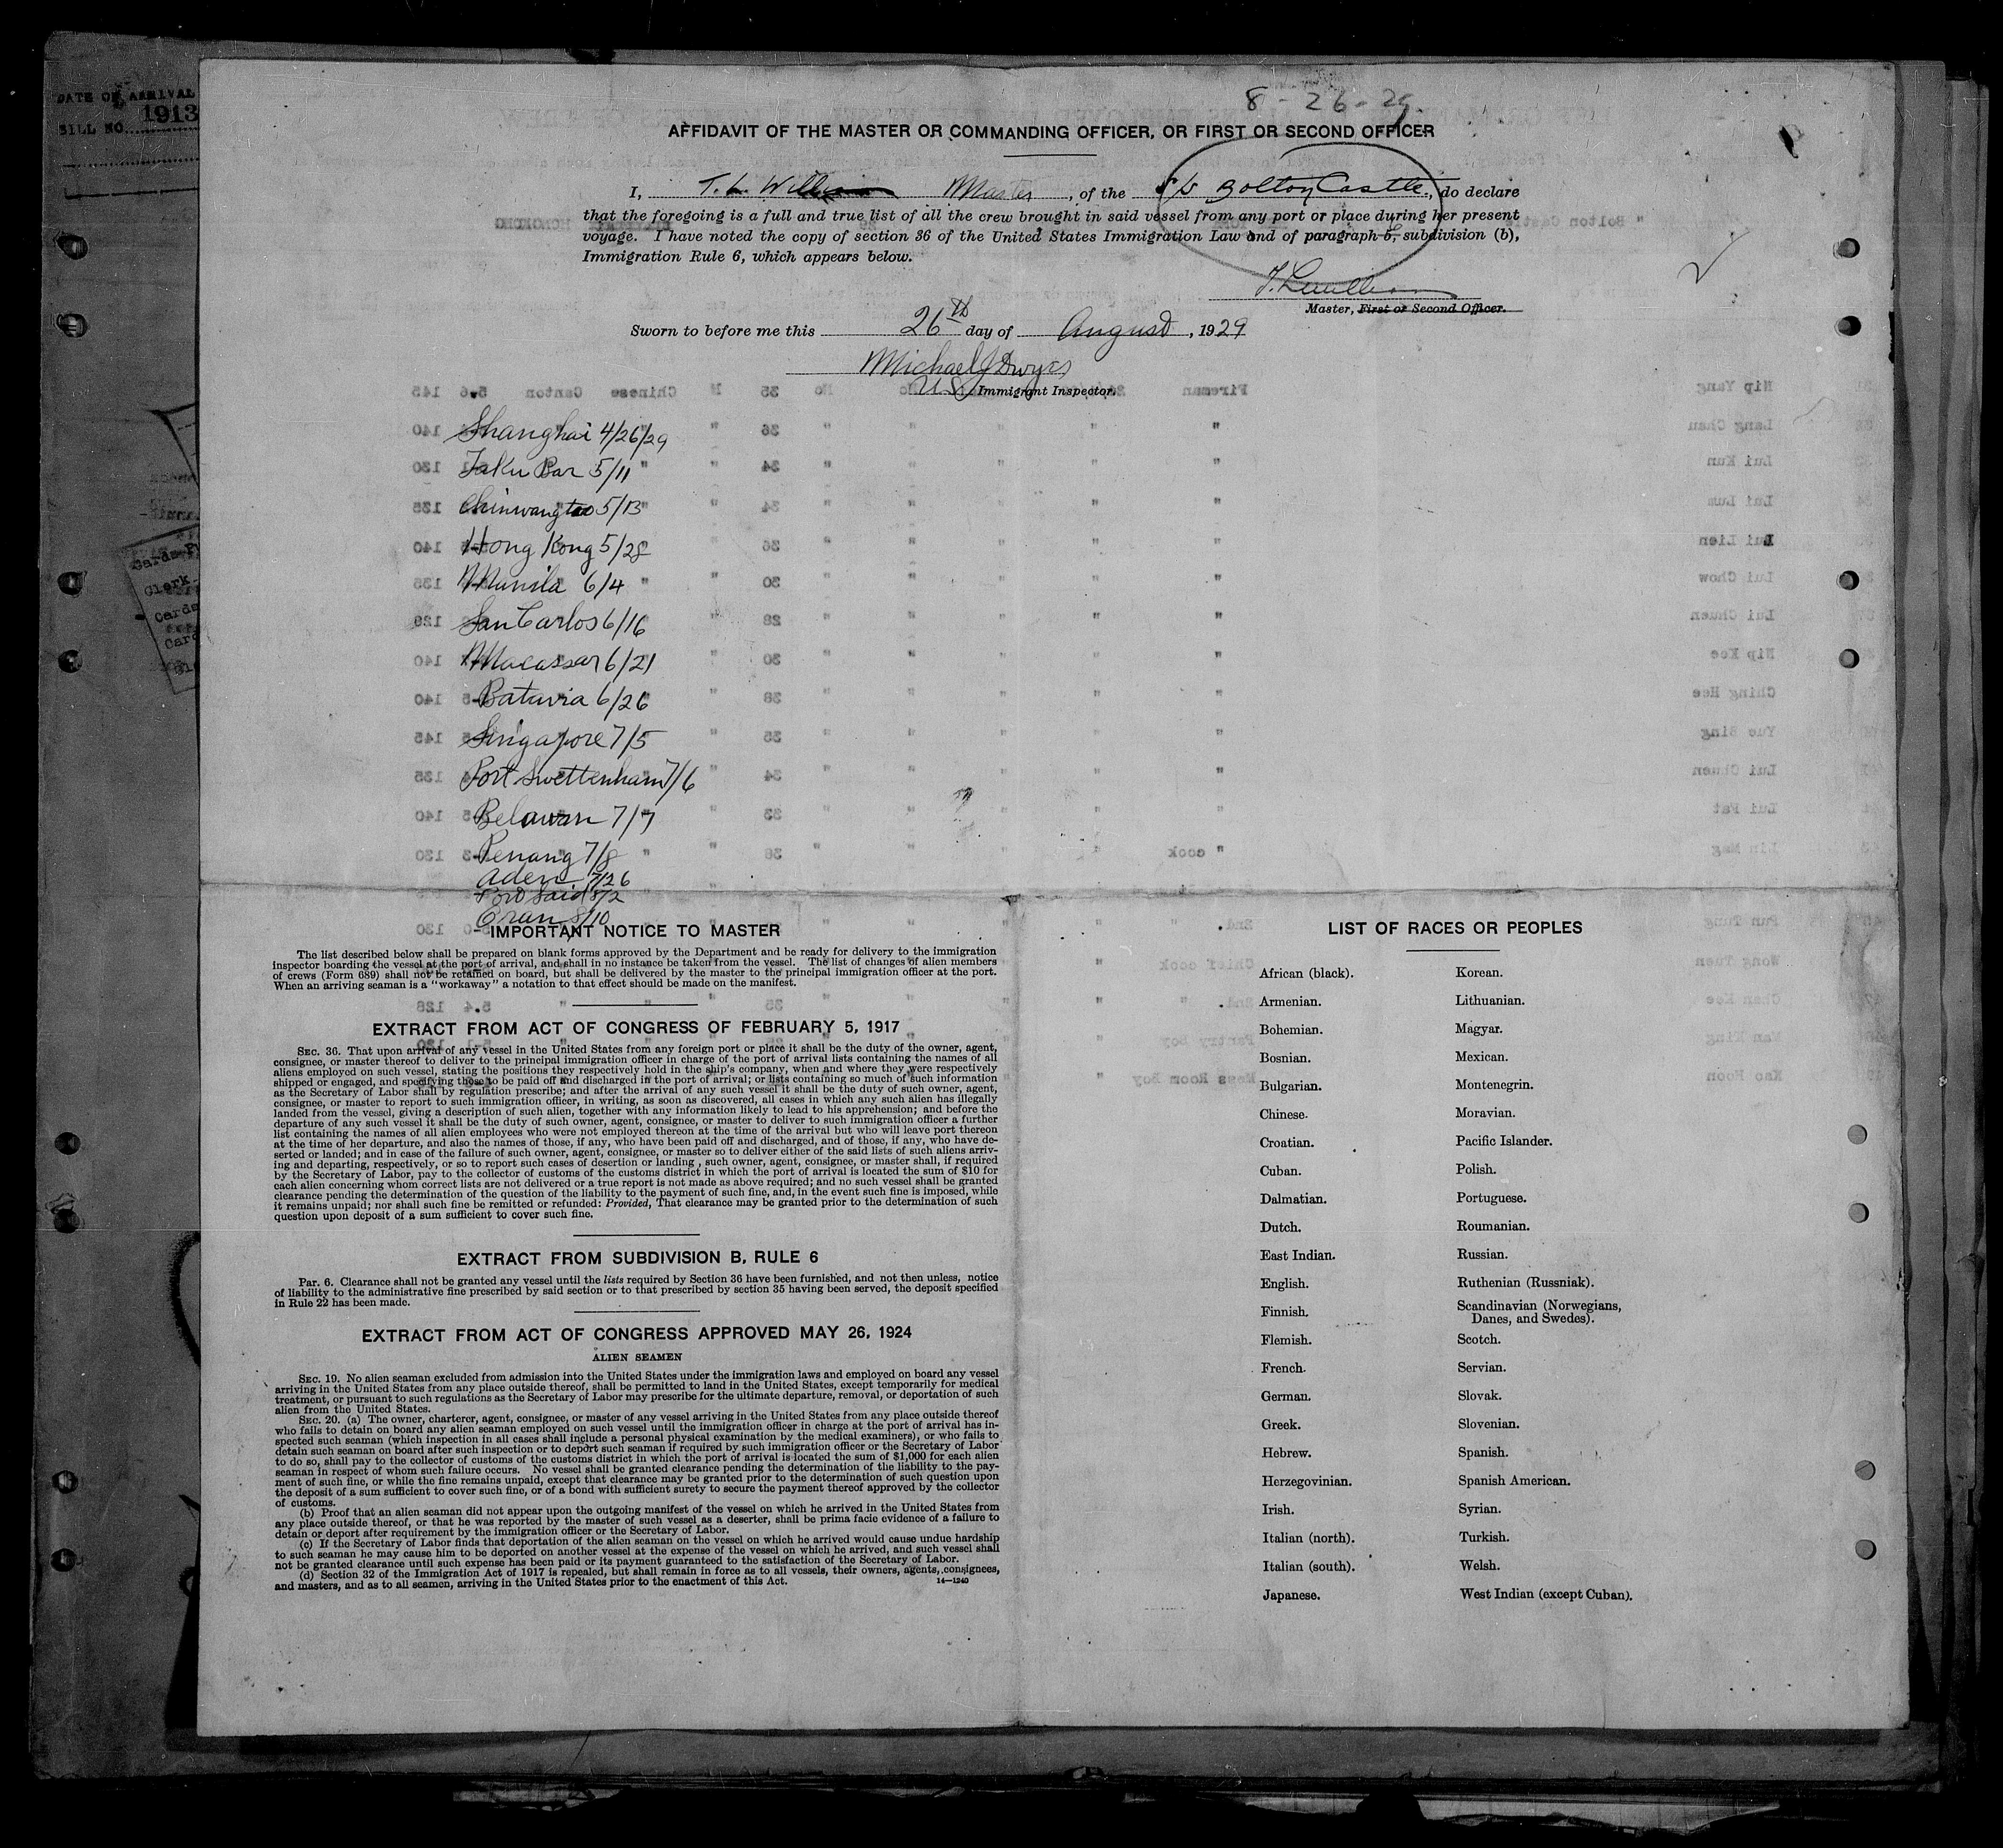 DATE OF ARRIVAL
BILL NO. 1913
8 - 26 - 29
AFFIDAVIT OF THE MASTER OR COMMANDING OFFICER, OR FIRST OR SECOND OFFICER
I, T. L. Williams Master, of the S/S Bolton Castle, do declare
that the foregoing is a full and true list of all the crew brought in said vessel from any port or place during her present
voyage. I have noted the copy of section 36 of the United States Immigration Law and of paragraph 5, subdivision (b),
Immigration Rule 6, which appears below.
Master, First or Second Officer.
Sworn to before me this 26th day of August, 1929
Michael J Dwyer
U.S. Immigrant Inspector.
Shanghai 4/26/29
Taku Bar 5/11
Chinwangtao 5/13
Hong Kong 5/28
Manila 6/4
San Carlos 6/16
Macassar 6/21
Batavia 6/26
Singapore 7/5
Port Swettenham 7/6
Belawan 7/7
Penang 7/8
Aden 7/26
Port Said 8/2
Oran 8/10
IMPORTANT NOTICE TO MASTER
The list described below shall be prepared on blank forms approved by the Department and be ready for delivery to the immigration
inspector boarding the vessel at the port of arrival, and shall in no instance be taken from the vessel. The list of changes of alien members
of crews (Form 689) shall not be retained on board, but shall be delivered by the master to the principal immigration officer at the port.
When an arriving seaman is a "workaway" a notation to that effect should be made on the manifest.
EXTRACT FROM ACT OF CONGRESS OF FEBRUARY 5, 1917
SEC. 36. That upon arrival of any vessel in the United States from any foreign port or place it shall be the duty of the owner, agent,
consignee, or master thereof to deliver to the principal immigration officer in charge of the port of arrival lists containing the names of all
aliens employed on such vessel, stating the positions they respectively hold in the ship's company, when and where they were respectively
shipped or engaged, and specifying those to be paid off and discharged in the port of arrival; or lists containing so much of such information
as the Secretary of Labor shall by regulation prescribe; and after the arrival of any such vessel it shall be the duty of such owner, agent,
consignee, or master to report to such immigration officer, in writing, as soon as discovered, all cases in which any such alien has illegally
landed from the vessel, giving a description of such alien, together with any information likely to lead to his apprehension; and before the
departure of any such vessel it shall be the duty of such owner, agent, consignee, or master to deliver to such immigration officer a further
list containing the names of all alien employees who were not employed thereon at the time of the arrival but who will leave port thereon
at the time of her departure, and also the names of those, if any, who have been paid off and discharged, and of those, if any, who have de-
serted or landed; and in case of the failure of such owner, agent, consignee, or master so to deliver either of the said lists of such aliens arriv-
ing and departing, respectively, or so to report such cases of desertion or landing , such owner, agent, consignee, or master shall, if required
by the Secretary of Labor, pay to the collector of customs of the customs district in which the port of arrival is located the sum of $10 for
each alien concerning whom correct lists are not delivered or a true report is not made as above required; and no such vessel shall be granted
clearance pending the determination of the question of the liability to the payment of such fine, and, in the event such fine is imposed, while
it remains unpaid; nor shall such fine be remitted or refunded: Provided, That clearance may be granted prior to the determination of such
question upon deposit of a sum sufficient to cover such fine.
EXTRACT FROM SUBDIVISION B, RULE 6
Par. 6. Clearance shall not be granted any vessel until the lists required by Section 36 have been furnished, and not then unless, notice
of liability to the administrative fine prescribed by said section or to that prescribed by section 35 having been served, the deposit specified
in Rule 22 has been made.
EXTRACT FROM ACT OF CONGRESS APPROVED MAY 26, 1924
ALIEN SEAMEN
SEC. 19. No alien seaman excluded from admission into the United States under the immigration laws and employed on board any vessel
arriving in the United States from any place outside thereof, shall be permitted to land in the United States, except temporarily for medical
treatment, or pursuant to such regulations as the Secretary of Labor may prescribe for the ultimate departure, removal, or deportation of such
alien from the United States.
SEC. 20. (a) The owner, charterer, agent, consignee, or master of any vessel arriving in the United States from any place outside thereof
who fails to detain on board any alien seaman employed on such vessel until the immigration officer in charge at the port of arrival has in-
spected such seaman (which inspection in all cases shall include a personal physical examination by the medical examiners), or who fails to
detain such seaman on board after such inspection or to deport such seaman if required by such immigration officer or the Secretary of Labor
to do so, shall pay to the collector of customs of the customs district in which the port of arrival is located the sum of $1,000 for each alien
seaman in respect of whom such failure occurs. No vessel shall be granted clearance pending the determination of the liability to the pay-
ment of such fine, or while the fine remains unpaid, except that clearance may be granted prior to the determination of such question upon
the deposit of a sum sufficient to cover such fine, or of a bond with sufficient surety to secure the payment thereof approved by the collector
of customs.
(b) Proof that an alien seaman did not appear upon the outgoing manifest of the vessel on which he arrived in the United States from
any place outside thereof, or that he was reported by the master of such vessel as a deserter, shall be prima facie evidence of a failure to
detain or deport after requirement by the immigration officer or the Secretary of Labor.
(c) If the Secretary of Labor finds that deportation of the alien seaman on the vessel on which he arrived would cause undue hardship
to such seaman he may cause him to be deported on another vessel at the expense of the vessel on which he arrived, and such vessel shall
not be granted clearance until such expense has been paid or its payment guaranteed to the satisfaction of the Secretary of Labor.
(d) Section 32 of the Immigration Act of 1917 is repealed, but shall remain in force as to all vessels, their owners, agents, consignees,
and masters, and as to all seamen, arriving in the United States prior to the enactment of this Act.
14—1240
LIST OF RACES OR PEOPLES
African (black). Korean.
Armenian. Lithuanian.
Bohemian. Magyar.
Bosnian. Mexican.
Bulgarian. Montenegrin.
Chinese. Moravian.
Croatian. Pacific Islander.
Cuban. Polish.
Dalmatian. Portuguese.
Dutch. Roumanian.
East Indian. Russian.
English. Ruthenian (Russniak).
Finnish. Scandinavian (Norwegians,
Danes, and Swedes).
Flemish. Scotch.
French. Servian.
German. Slovak.
Greek. Slovenian.
Hebrew. Spanish.
Herzegovinian. Spanish American.
Irish. Syrian.
Italian (north). Turkish.
Italian (south). Welsh.
Japanese. West Indian (except Cuban).